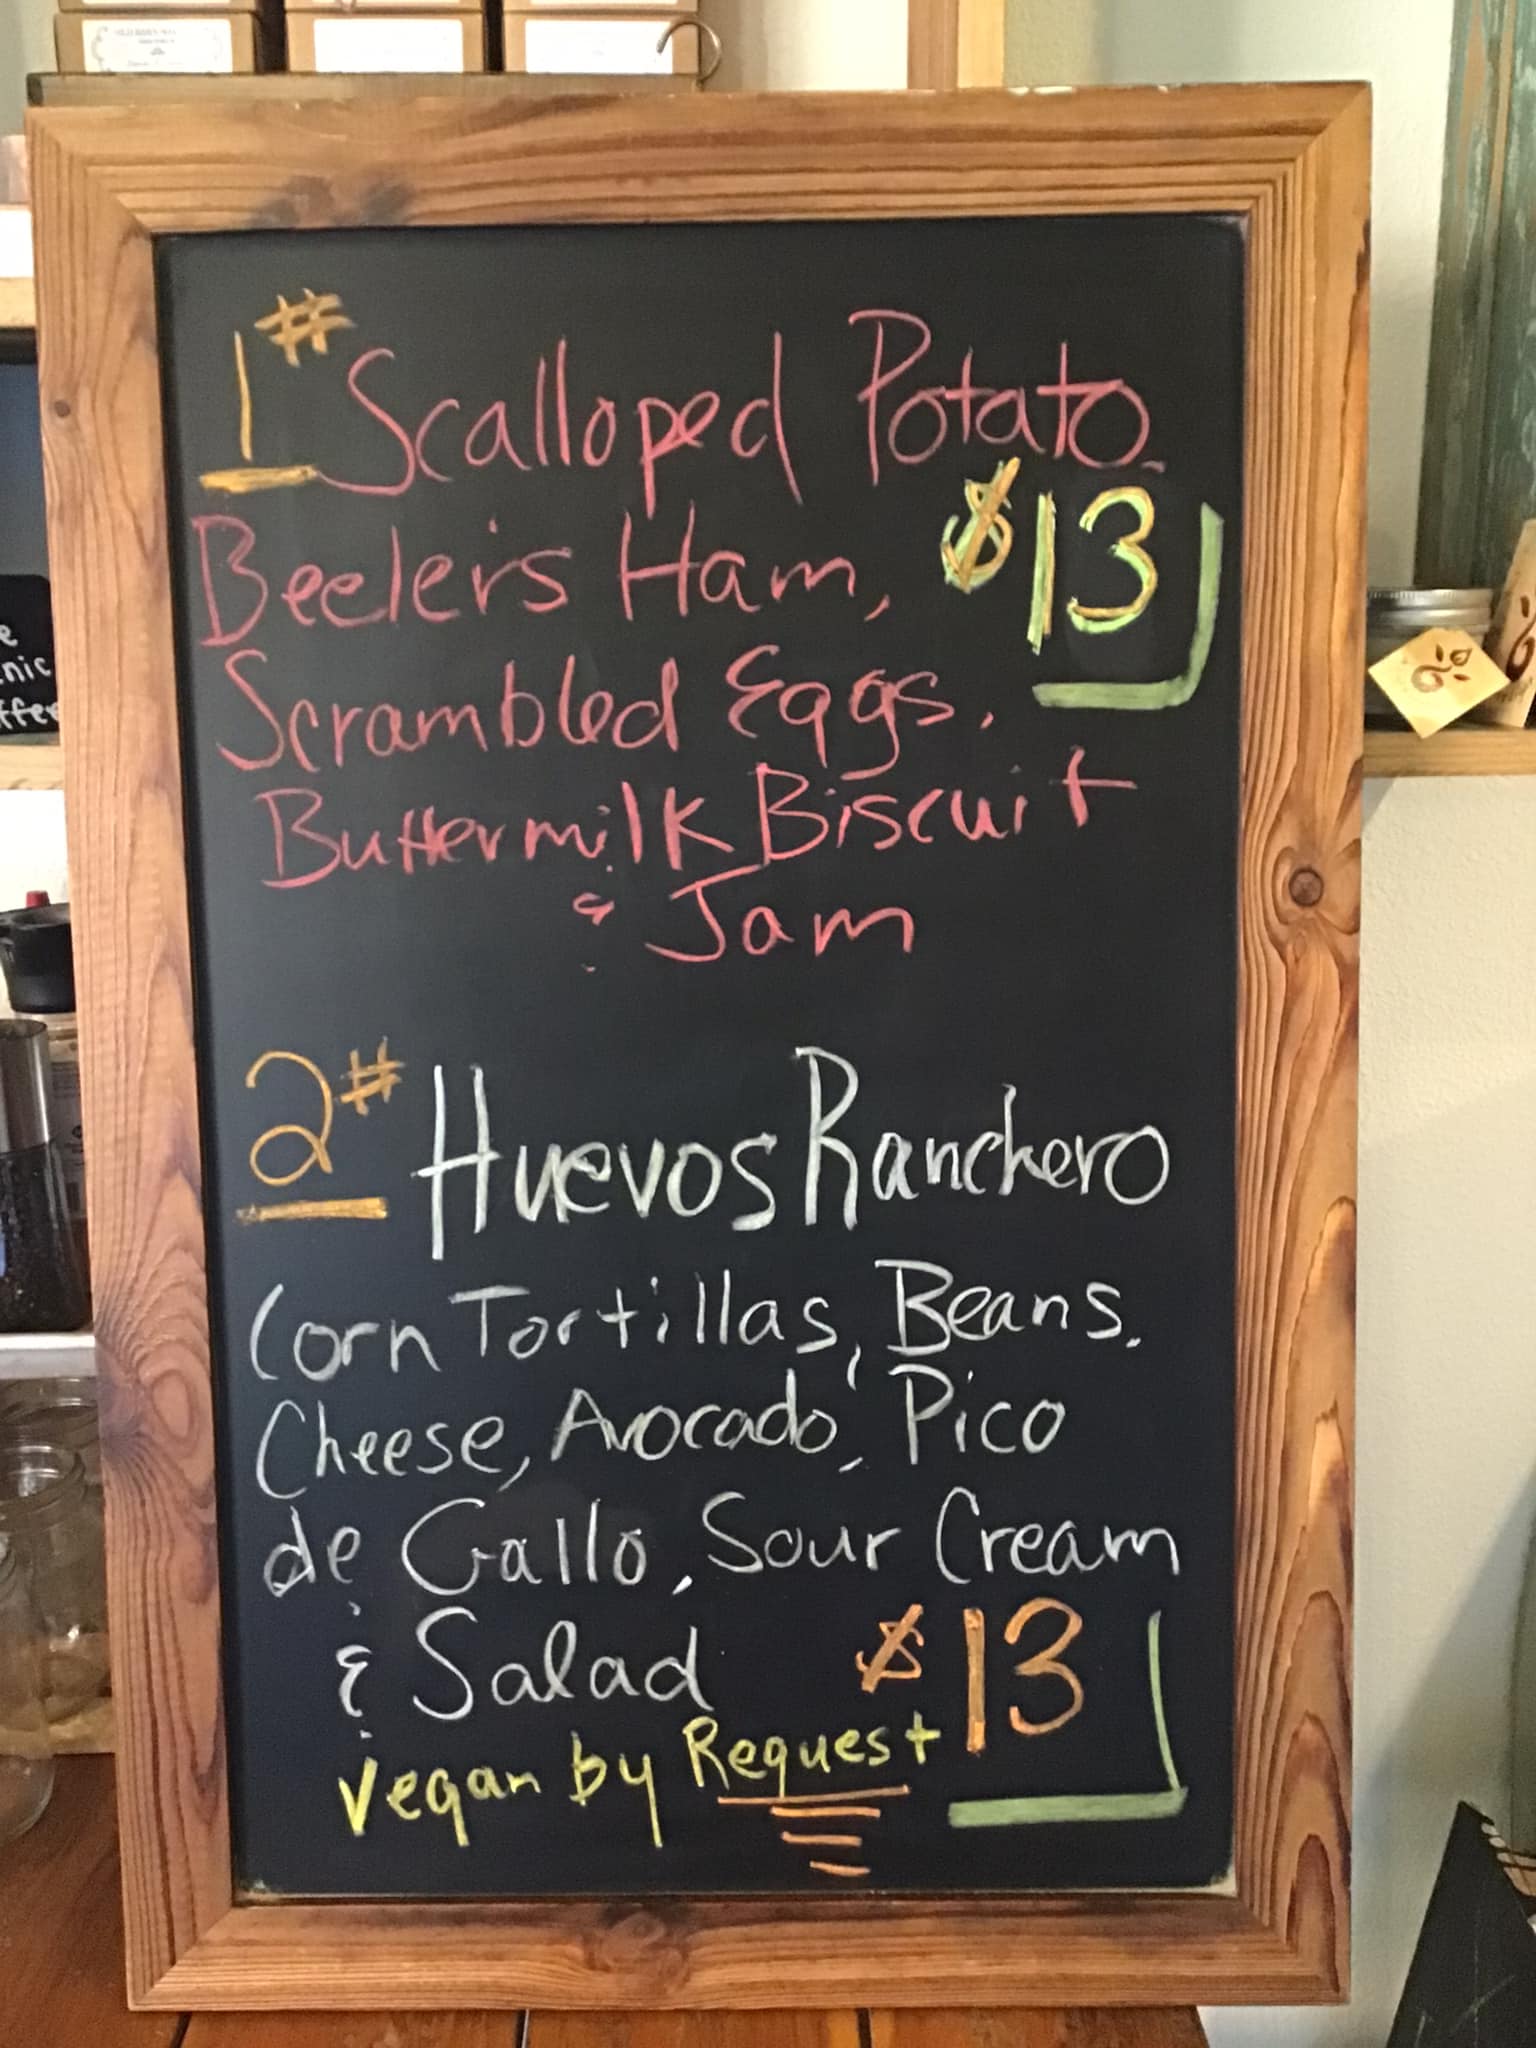 1# Scalloped Potato.
Beeler's Ham, $13
Scrambled Eggs,
Buttermilk Biscuit
& Jam
2# Huevos Ranchero
Corn Tortillas, Beans.
Cheese, Avocado, Pico
de Gallo, Sour Cream
& Salad $13
vegan by Request